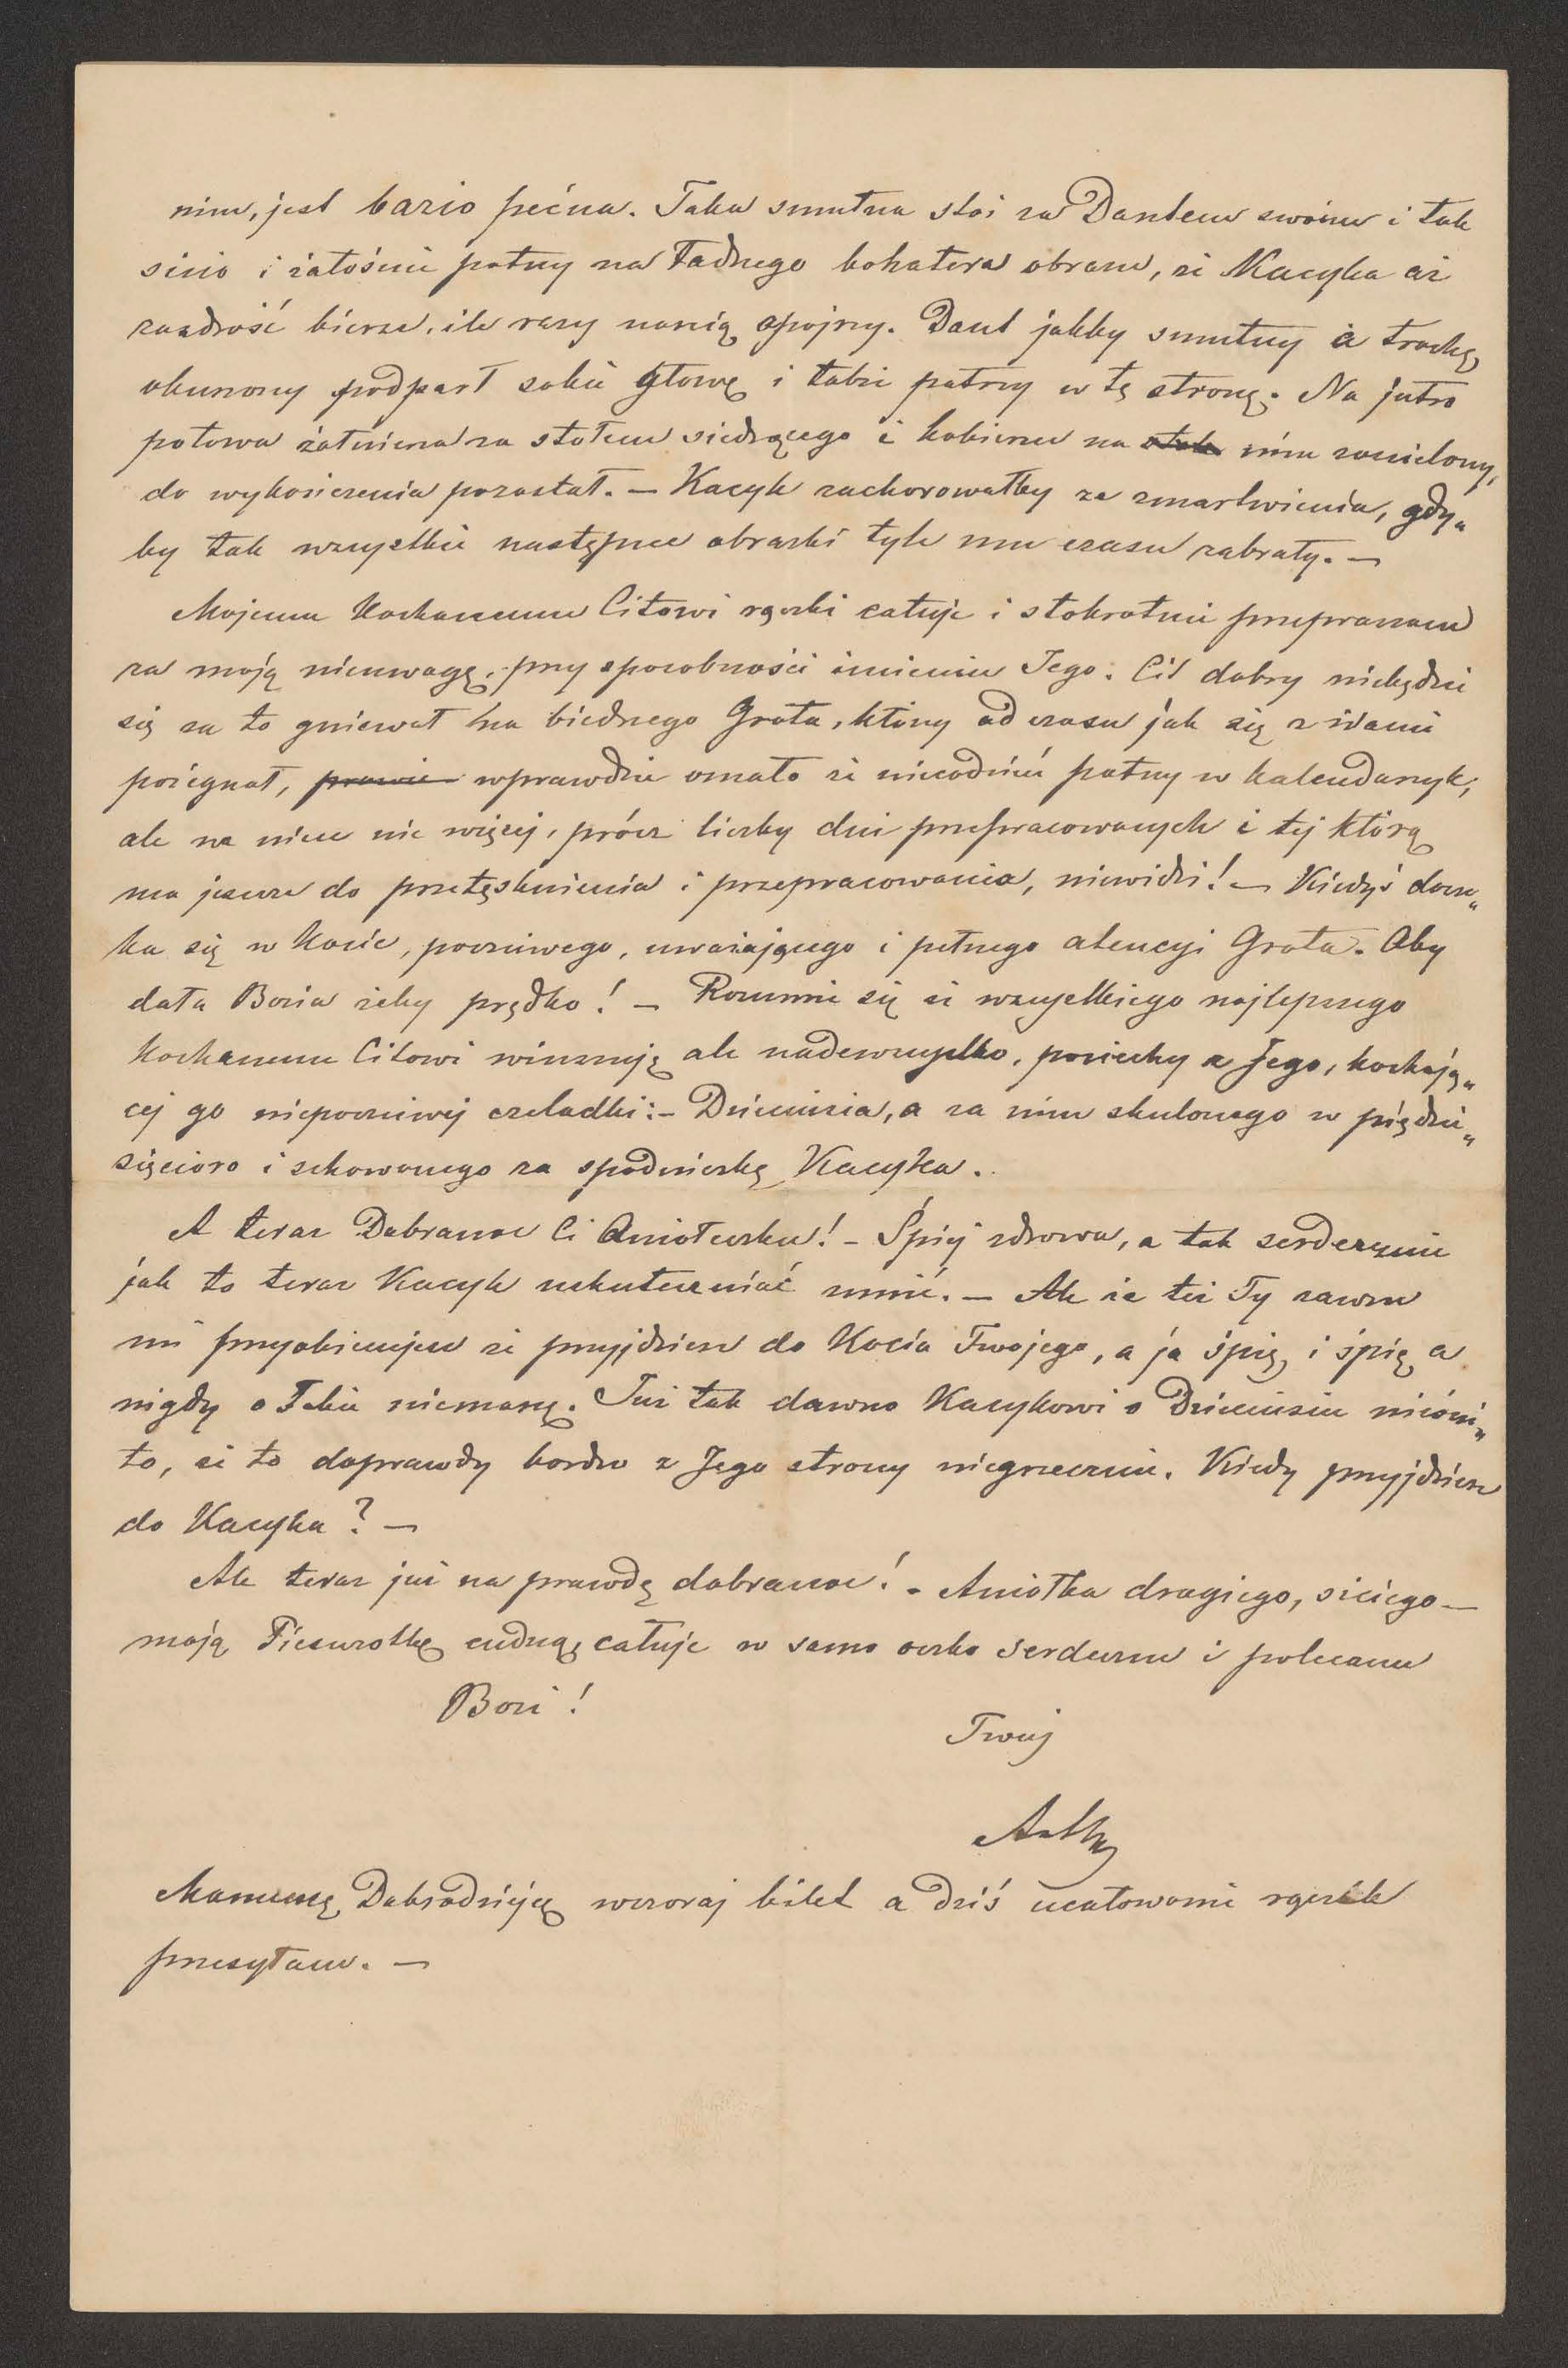 nim, jest bazio pećna. Taka smutna stoi za Dantem swoim i tak
sicio i żałośnie patrzy na Ładnego bohatera obrazu, że Kacyka aż
zazdrość bierze, ile razy nanią spojrzy. Dant jakby smutny a trochę
oburzony podparł sobie głowę i także patrzy w tę stronę. Na jutro
połowa żołnierza za stołem siedzącego i kobierzec na nim zawieszony,
do wykończenia pozostał. — Kacyk zachorowałby ze zmartwienia, gdy„
by tak wszystkie następne obrazki tyle mu czasu zabrały. —
Mojemu Kochanemu Citowi rączki całuję i stokrotnie przepraszam
za moją nieuwagę, przy sposobności imienin Jego. Cit dobry niebędzie
się za to gniewał na biednego Grota, który od czasu jak się z Wami
pożegnał, prawie wprawdzie omało że niecodzień patrzy w kalendarzyk,
ale na nim nic więcej, prócz liczby dni przepracowanych i tej którą
ma jeszcze do przetęsknienia i przepracowania, niewidzi! — Kiedyś docze„
ka się w Kocie, poczciwego, uważającego i pełnego atencyi Grota. Oby
dała Bozia żeby prędko! — Rozumie się że wszystkiego najlepszego
Kochanemu Citowi winszuję ale nadewszystko, pociechy z Jego, kochają„
cej go niepoczciwej czeladki: – Dzieciusia, a za nim skulonego w pięćdzie„
sięcioro i schowanego za spódniczkę Kacyka.
A teraz Dobranoc Ci Aniołeczku! – Śpij zdrowa, a tak serdecznie
jak to teraz Kacyk uskuteczniać umié. — Ale że też Ty zawsze
mi przyobiecujesz że przyjdziesz do Kocia Twojego, a ja śpię, i śpię a
nigdy o Tobie niemarzę. Już tak dawno Kacykowi o Dzieciusiu nieśni„
ło, że to doprawdy bardzo z Jego strony niegrzecznie. Kiedy przyjdziesz
do Kacyka? —
Ale teraz już na prawdę dobranoc! – Aniołka drogiego, siciego —
moją Pieszczotkę cudną, całuję w samo oczko serdeczne i polecam
Bozi!
Twój
Mamusię Dobrodziejkę wczoraj bilet a dziś ucałowanie rączek
przesyłam. —